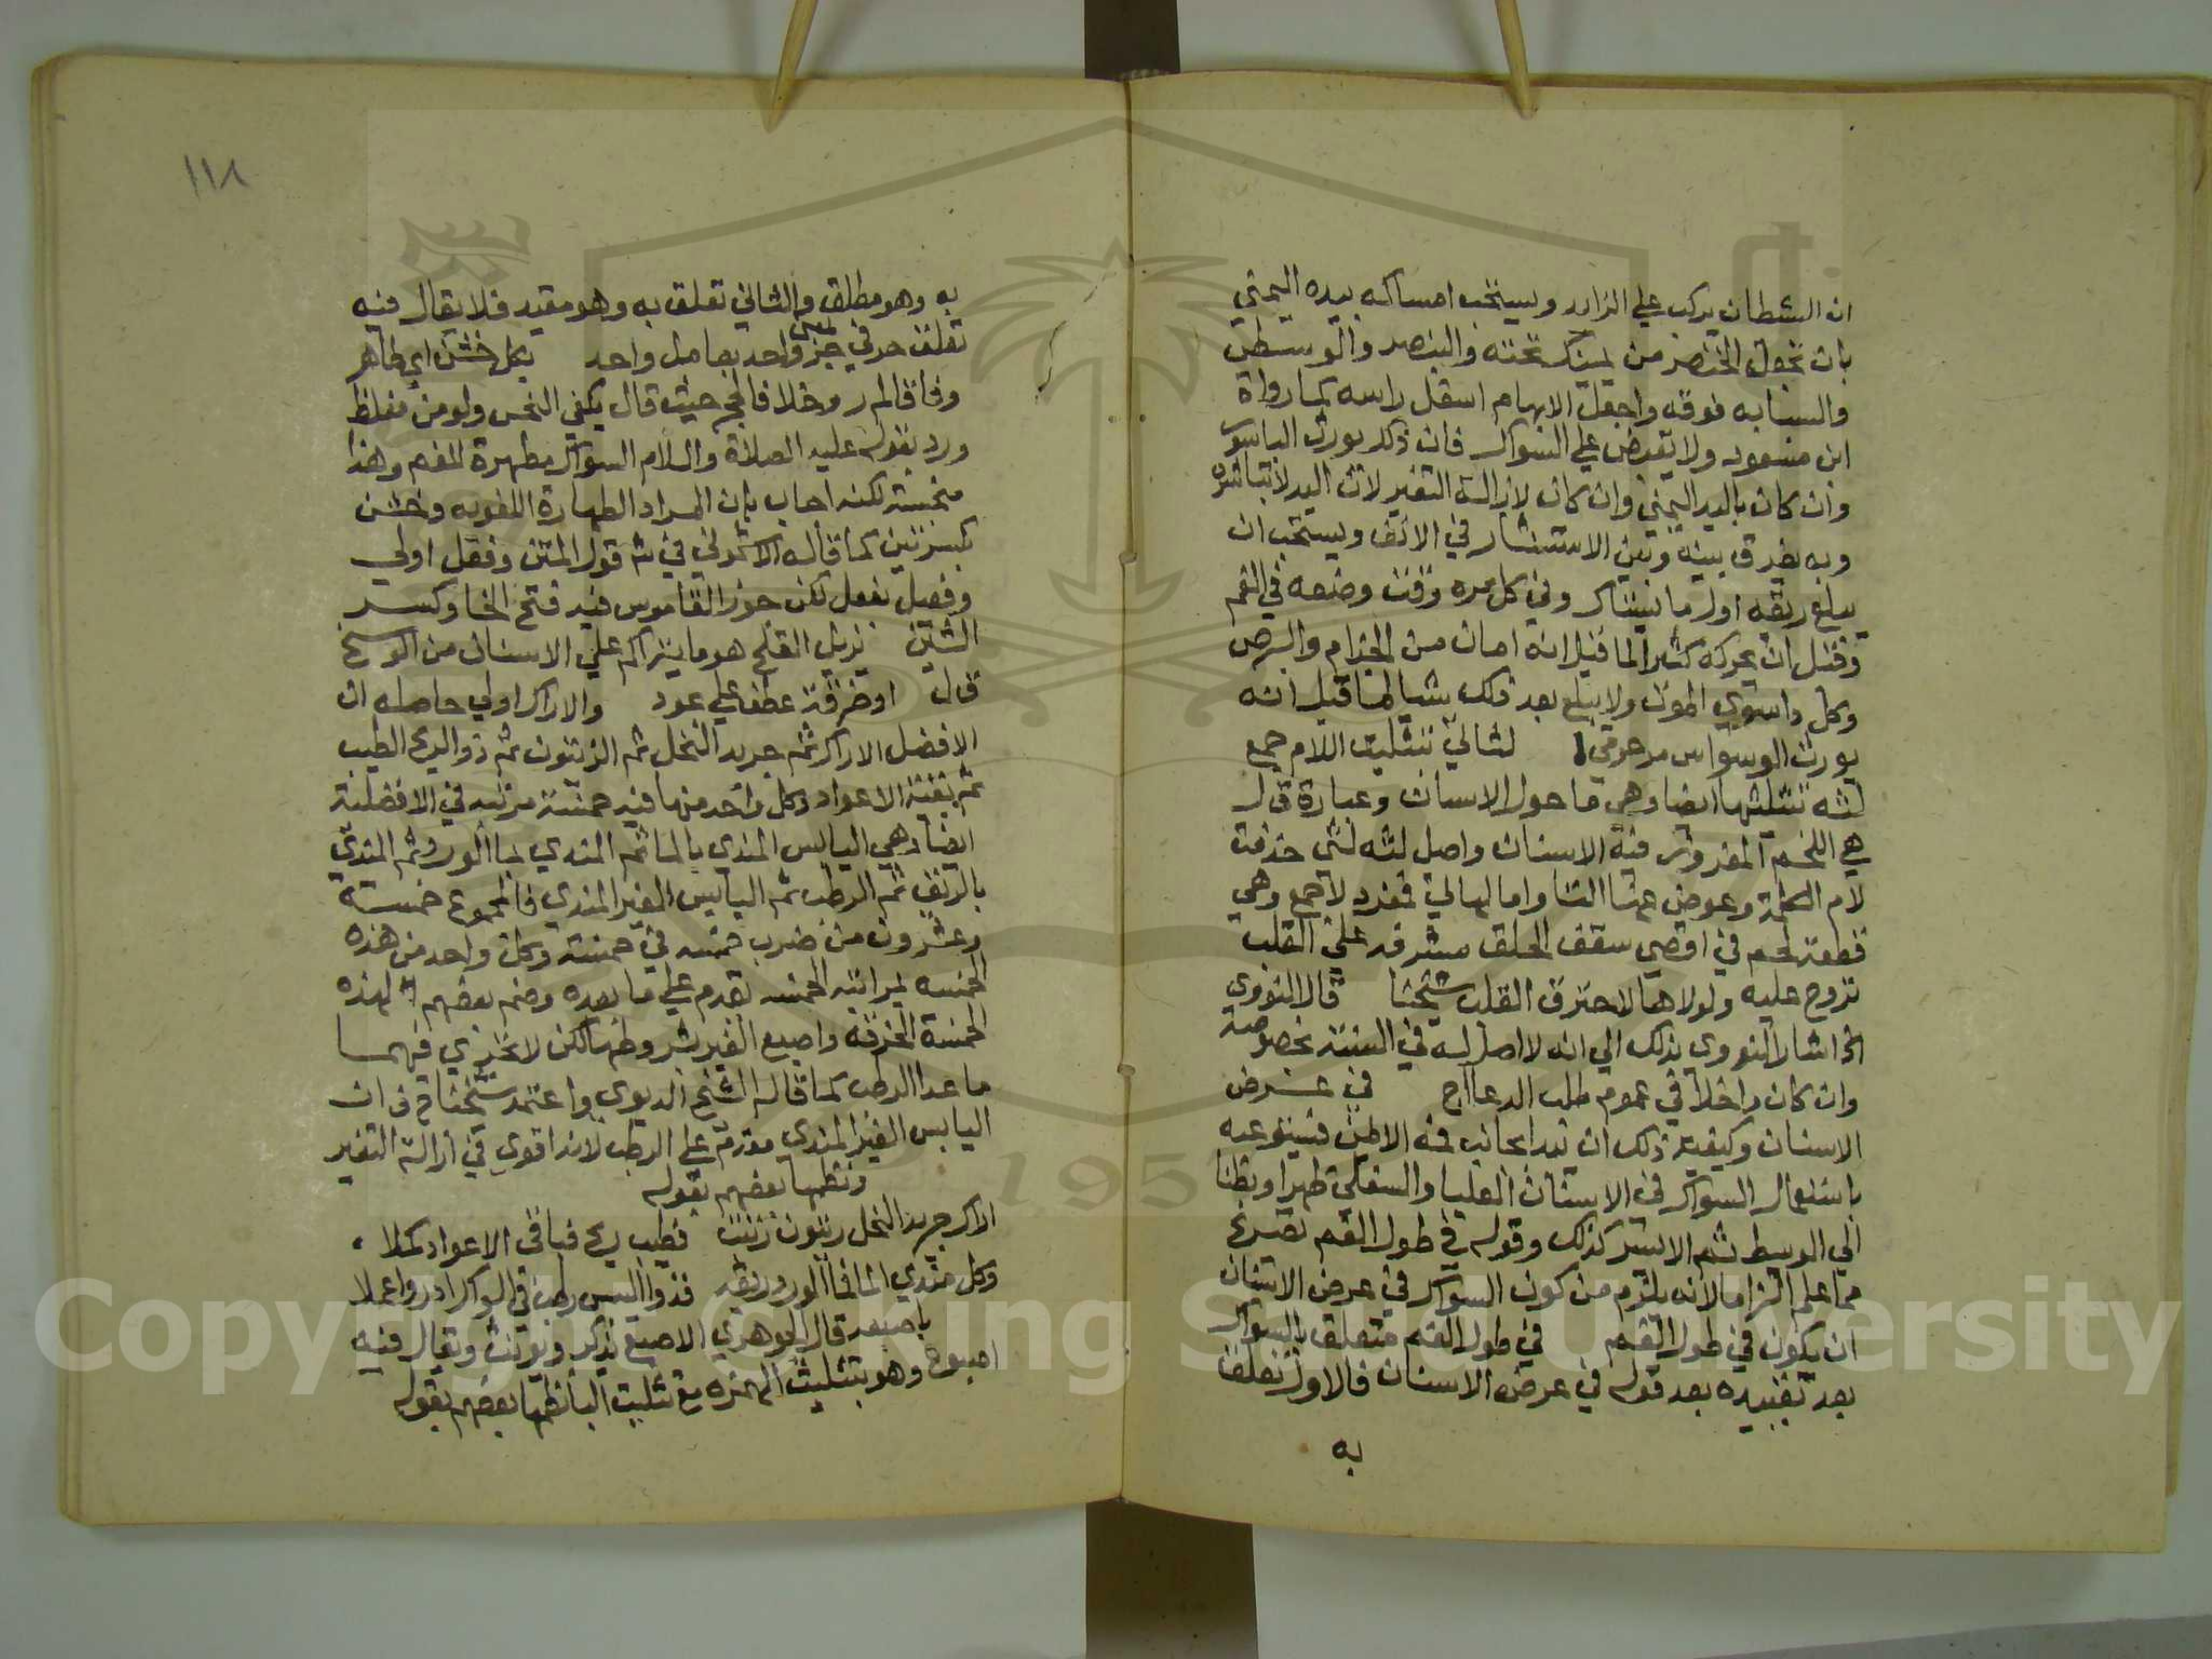 ان الشيطان يركب علي الزايد ويستحب امساكه بيده اليمني
بان تجعل الخنصر من تحته والبنصر والوسطي
والسبابه فوقه واجعل الابهام اسفل راسه كما رواة
ابن مسعود ولا تقبض علي السواك فان ذلك يورث الباسور
وان كان باليد اليمني وان كان لازالة التغير لان اليد لا تباشره
وبه يفرق بينه وبين الاستنثار في الانف ويستحب ان
يبلع ريقه اول ما يستاك وفي كل مره وقت وضعه في الفم
وقبل ان يحركه كثيرا لما قيل انه امان من الجذام والبرص
وكل داسوي الموت ولا يبلع بعد ذلك شيا لما قيل انه
يورث الوسواس مرحومي لثاتي بتثليث اللام جمع
لثه بتثليثها ايضا وهي ما حول الاسنان وعبارة ق ل
هي اللحم المغروز فيه الاسنان واصل لثه لثي حذفت
لام الكلمة وعوض عنها التا واما لهاتي فمفرد لا جمع وهي
قطعة لحم في اقصي سقف الحلق مشرفه علي القلب
تروح عليه ولولاهما لاحترق القلب شيخنا قال النووي
الخ اشار النووي بذلك الي انه لا اصل له في السنة بخصوصه
وان كان داخلا في عموم طلب الدعا اج في عرض
الاسنان وكيفية ذلك ان يبدا بجانب فمه الايمن فيستوعبه
باستعمال السواك في الاسنان العليا والسفلي ظهرا وبطنا
الي الوسط ثم الايسر كذلك وقوله في طول الفم تصريح
مما علم التزاما لانه يلزم من كون السواك في عرض الاسنان
ان يكون في طول الفم في طول الفم متعلق بالسواك
بعد تقييده بعد قوله في عرض الاسنان فالاول تعلق
به
١١٨
به وهو مطلق والثاني تعلق به وهو مقيد فلا يقال فيه
تعلق حرفي جر بمعني واحد بعامل واحد بكل خشن اي طاهر
وفاقا لم ر وخلافا لحج حيث قال يكفي النجس ولو من مغلظ
ورد بقوله عليه الصلاة والسلام السواك مطهرة للفم وهذا
منجسة لكنه اجاب بان المراد الطهارة اللغويه وخشن
بكسرتين كما قاله الاشموني في ش قول المتن وفعل اولي
وفعيل بفعل لكن جوز القاموس فيه فتح الخا وكسر
الشين يزيل القلح هو ما يتراكم علي الاسنان من الوسخ
قال او خرقة عطف علي عود والاراك اولي حاصله ان
الافضل الاراك ثم جريد النخل ثم الزيتون ثم ذو الريح الطيب
ثم بقية الاعواد وكل واحد منها فيه خمسة مرتبه في الافضلية
ايضا وهي اليابس المندي بالما ثم المندي بما الورد ثم المندي
بالريق ثم الرطب ثم اليابس الغير المندي فالمجموع خمسة
وعشرون من ضرب خمسه في خمسة وكل واحد من هذه
الخمسه بمراتبه الخمسه تقدم علي ما بعده وضم بعضهم لهذه
الخمسة الخرقة واصبع الغير بشروطها لكن لا يجري فيهما
ما عدا الرطب كما قاله الشيخ الديوي واعتمد شيخنا ح ف ان
اليابس الغير المندي مقدم علي الرطب لانه اقوي في ازالة التغير
ونظمها بعضهم بقوله
اراك جريد النخل زيتون رتبت فطيب ريح فباقي الاعواد كملا
وكل مندي الما فما الورد وريقه فذو اليبس رطب في السواك ادر واعملا
باصبعه قال الجوهري الاصبع يذكر ويونث ويقال فيه
اصبوع وهو بتثليث الهمزه مع تثليث البا نظمها بعضهم بقوله